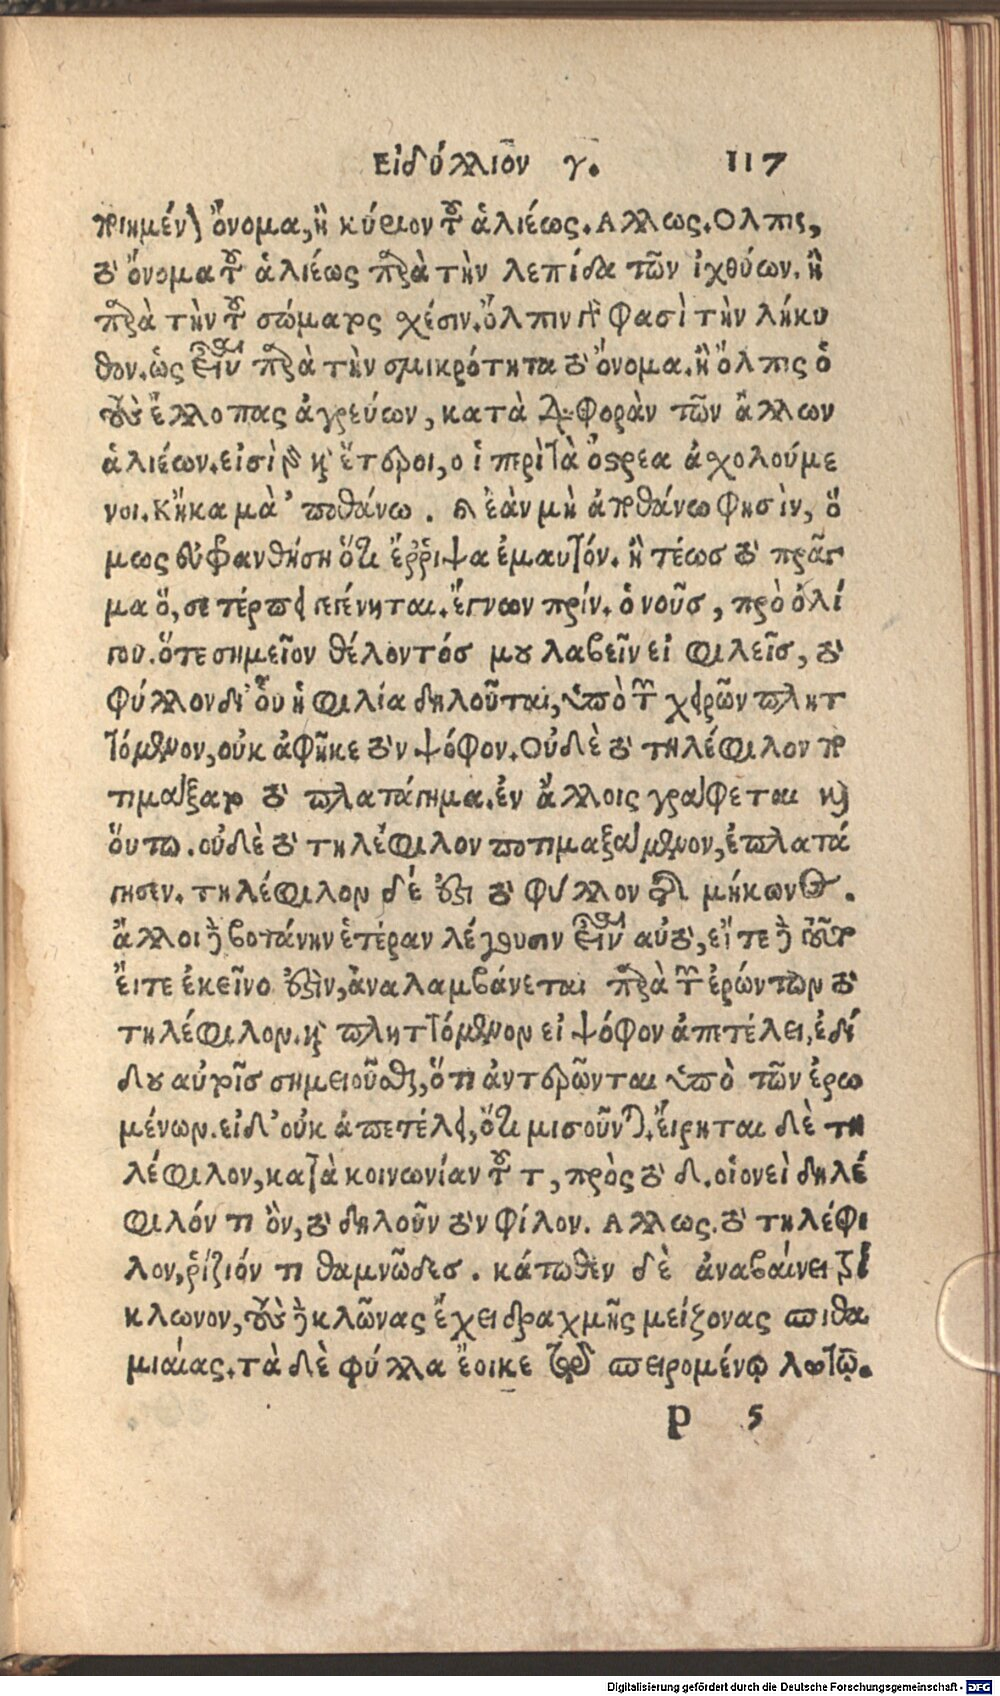 Εἰδύλλιον γ. 117
ποιημένον ὄνομα, ἢ κύριον τοῦ ἁλιέως. Ἄλλως. Ὄλπις,
τὸ ὄνομα τοῦ ἁλιέως παρὰ τὴν λεπίδα τῶν ἰχθύων. ἢ
παρὰ τὴν τοῦ σώματος χέσιν. ὄλπιν γὰρ φασὶ τὴν λήκυ
θον. ὡς εἶναι παρὰ τὴν σμικρότητα τὸ ὄνομα. ἢ ὄλπις ὁ
τοὺς ἔλλοπας ἀγρεύων, κατὰ διαφορὰν τῶν ἄλλων
ἁλιέων. εἰσὶ γὰρ καὶ ἕτεροι, οἱ περὶ τὰ ὄστρεα ἀσχολούμε
νοι. Κἤκα μὰ ’ποθάνω. καὶ ἐὰν μὴ ἀποθάνω φησὶν, ὅ
μως εὐφρανθήσῃ ὅτι ἔῤῥιψα ἐμαυτόν. ἢ τέως τὸ πρᾶγ
μα ὅ, σε τέρπει γεγένηται. ἔγνων πρίν. ὁ νοῦς, πρὸ ὀλί
γου. ὅτε σημεῖον θέλοντός μου λαβεῖν εἰ φιλεῖς, τὸ
φύλλον δι’ οὗ ἡ φιλία δηλοῦται, ὑπὸ τῶν χειρῶν πλητ
τόμενον, οὐκ ἀφῆκε τὸν ψόφον. Οὐδὲ τὸ τηλέφιλον πο
τιμαξατο τὸ πλατάγημα. ἐν ἄλλοις γράφεται καὶ
οὕτω. οὐδὲ τὸ τηλέφιλον ποτιμαξάμενον, ἐπλατά
γησεν. τηλέφιλον δέ ἐστι τὸ φύλλον τῆς μήκωνος.
ἄλλοι τὴν βοτάνην ἑτέραν λέγουσιν εἶναι αὐτό, εἴτε τὴν τοῦτο
εἴτε ἐκεῖνο ἐστὶν, ἀναλαμβάνεται παρὰ τῶν ἐρώντων τὸ
τηλέφιλον. καὶ πληττόμενον εἰ ψόφον ἀπετέλει, ἐδί
δου αὐτοῖς σημειοῦσθαι, ὅτι ἀντερῶνται ὑπὸ τῶν ἐρω
μένων. εἰ δ’ οὐκ ἀπετέλει, ὅτι μισοῦνται. εἴρηται δὲ τη
λέφιλον, κατὰ κοινωνίαν τοῦ τ, πρὸς τὸ δ. οἱονεὶ δηλέ
φιλόν τι ὂν, τὸ δηλοῦν τὸν φίλον. Ἄλλως. τὸ τηλέφι
λον, ῥίζιόν τι θαμνῶδες. κάτωθεν δὲ ἀναβαίνει
κλωνον, τοὺς κλῶνας ἔχει δραχμῆς μείζονας σπιθα
μιαίας. τὰ δὲ φύλλα ἔοικε τῷ σπειρομένῳ λωτῷ.
P 5
Digitalisierung gefördert durch die Deutsche Forschungsgemeinschaft - DFG